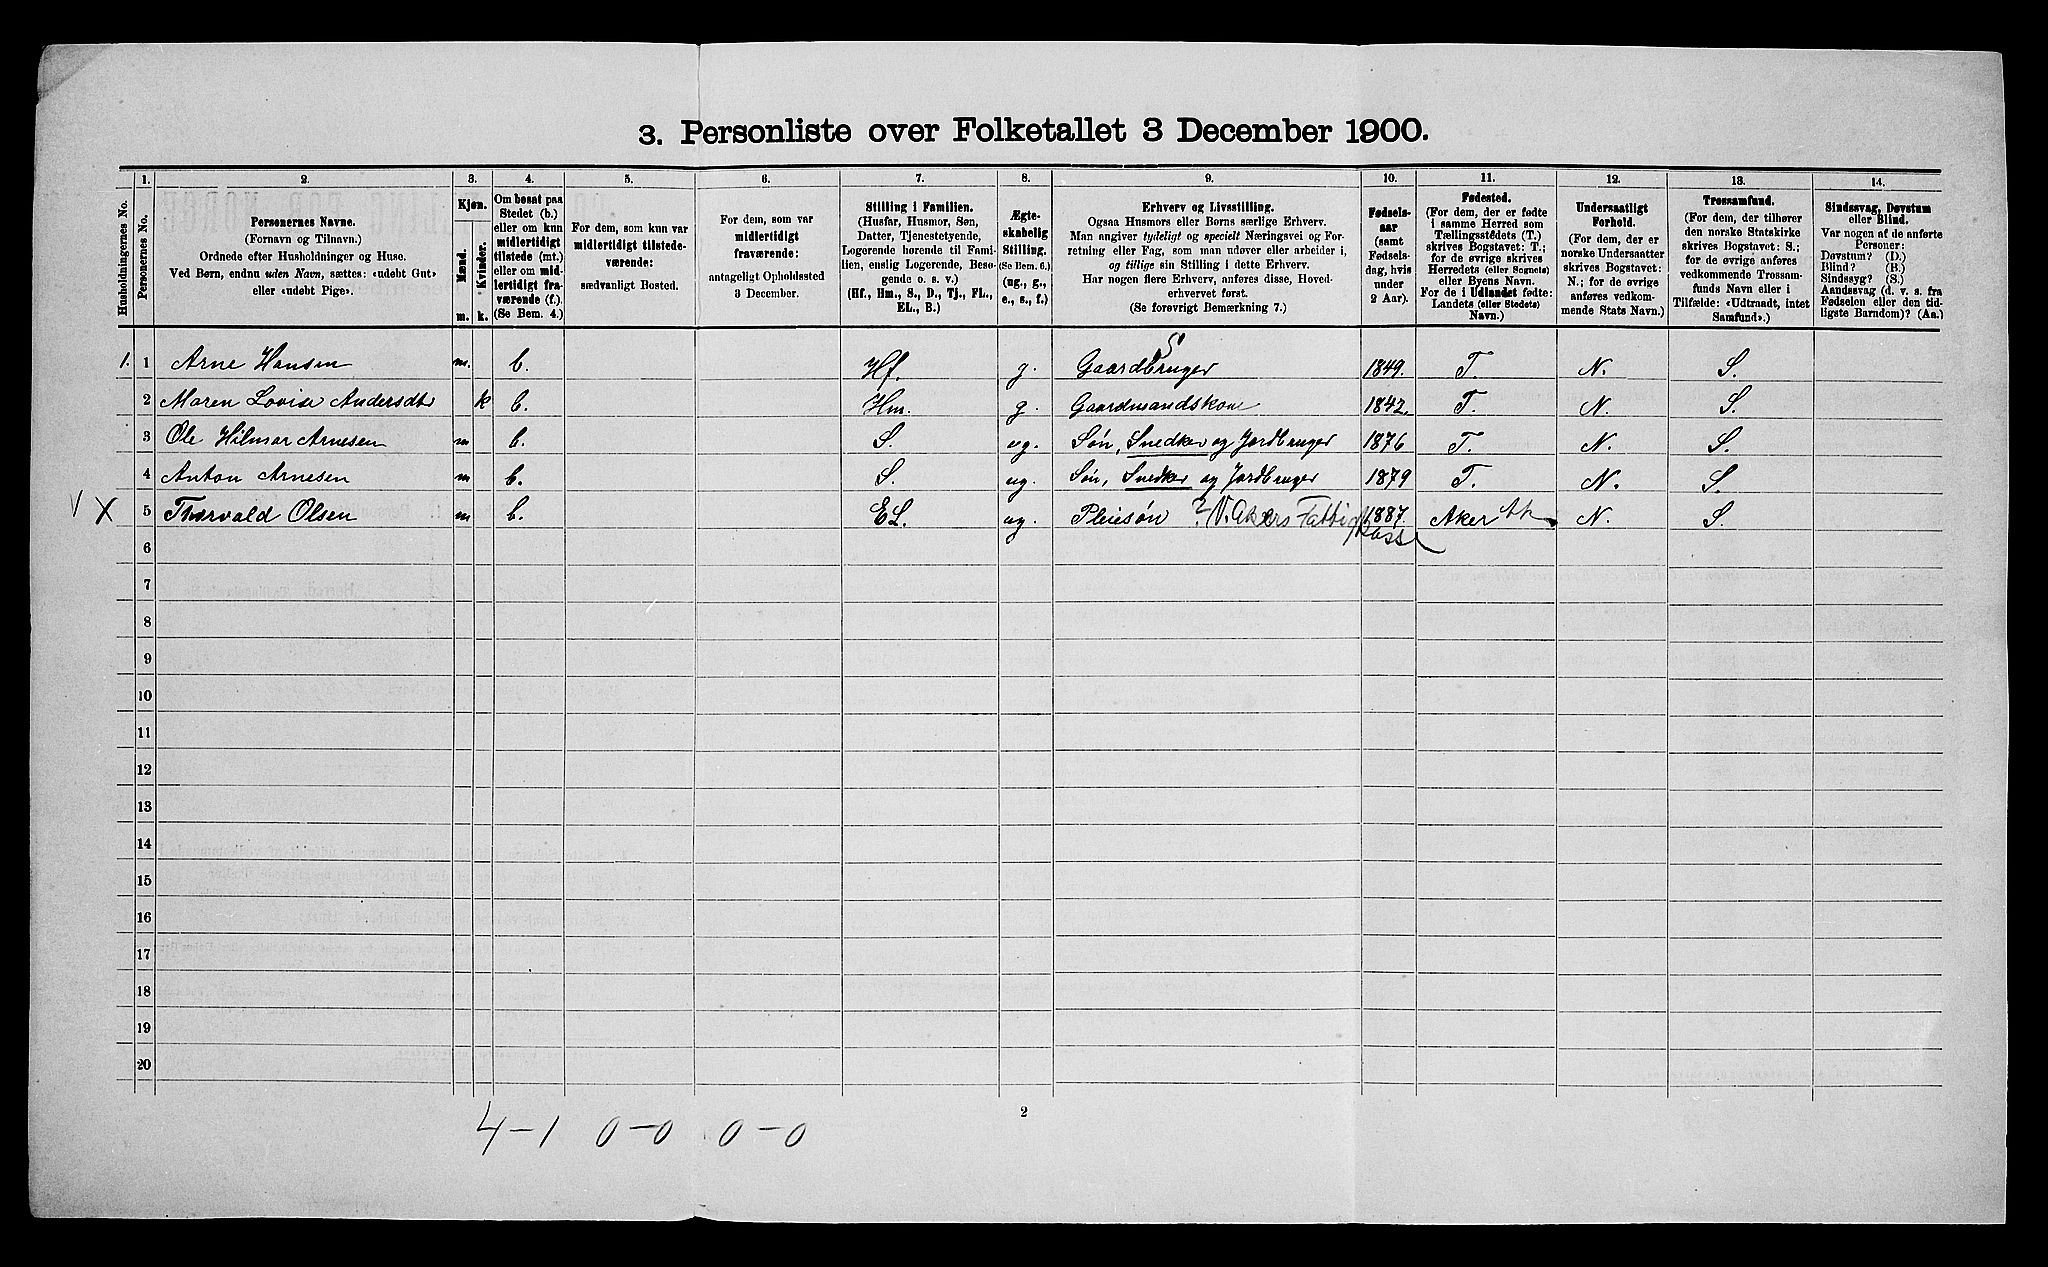 3. Personliste over Folketallet 3 December 1900.
Husholdningernes No.
1. Personernes No.
2. Personernes Navne.
(Fornavn og Tilnavn.)
Ordnede efter Husholdninger og Huse.
Ved Børn, endnu uden Navn, sættes: «udøbt Gut»
eller «udøbt Pige».
3. Kjøn.
Mænd. Kvinder.
m. k.
4. Om bosat paa
Stedet (b.)
eller om kun
midlertidigt
tilstede (mt.)
eller om mid-
lertidigt fra-
værende (f.)
(Se Bem. 4.)
5. For dem, som kun var
midlertidigt tilstede-
værende:
sædvanligt Bosted.
6. For dem, som var
midlertidigt
fraværende:
antageligt Opholdssted
3 December.
7. Stilling i Familien.
(Husfar, Husmor, Søn,
Datter, Tjenestetyende,
Logerende hørende til Fami-
lien, enslig Logerende, Besø-
gende o. s. v.)
(Hf., Hm., S., D., Tj., FL.,
EL., B.)
8. Ægte-
skabelig
Stilling.
(Se Bem. 6.)
(ug., g.,
e., s., f.)
9. Erhverv og Livsstilling.
Ogsaa Husmors eller Børns særlige Erhverv.
Man angiver tydeligt og specielt Næringsvei og For-
retning eller Fag, som man udøver eller arbeider i,
og tillige sin Stilling i dette Erhverv.
Har nogen flere Erhverv, anføres disse, Hoved-
erhvervet først.
(Se forøvrigt Bemærkning 7.)
10. Fødsels-
aar
(samt
Fødsels-
dag, hvis
under
2 Aar).
11. Fødested.
(For dem, der er fødte
i samme Herred som
Tællingsstedets (T.)
skrives Bogstavet: T.;
for de øvrige skrives
Herredets (eller Sognets)
eller Byens Navn.
For de i Udlandet fødte:
Landets (eller Stedets)
Navn.)
12. Undersaatligt
Forhold.
(For dem, der er
norske Undersaatter
skrives Bogstavet:
N.; for de øvrige
anføres vedkom-
mende Stats Navn.)
13. Trossamfund.
(For dem, der tilhører
den norske Statskirke
skrives Bogstavet: S.;
for de øvrige anføres
vedkommende Trossam-
funds Navn eller i
Tilfælde: «Udtraadt, intet
Samfund».)
14. Sindssvag, Døvstum
eller Blind.
Var nogen af de anførte
Personer:
Døvstum? (D.)
Blind? (B.)
Sindssyg? (S.)
Aandssvag (d. v. s. fra
Fødselen eller den tid-
ligste Barndom)? (Aa.)
5
1. 1 Arne Hansen m. b. Hf. g. Gaardbruger 1849. T. N. S.
2 Maren Lovise Andersdtr k b. Hm. g. Gaardmandskone 1842. T. N. S.
3 Ole Hilmar Arnesen m b. S. ug. Søn, Snedker og Jordbruger 1876 T. N. S.
4 Anton Arnesen m b. S. ug. Søn, Snedker og Jordbruger 1879 T. N. S.
X 5 Thorvald Olsen m b. EL. ug. Pleiesøn ? V. Akers Fattig 1887. Aker N. S.
kasse
6
7
8
9
10
11
12
13
14
15
16
17
18
19
20
2
4-1 0-0 0-0